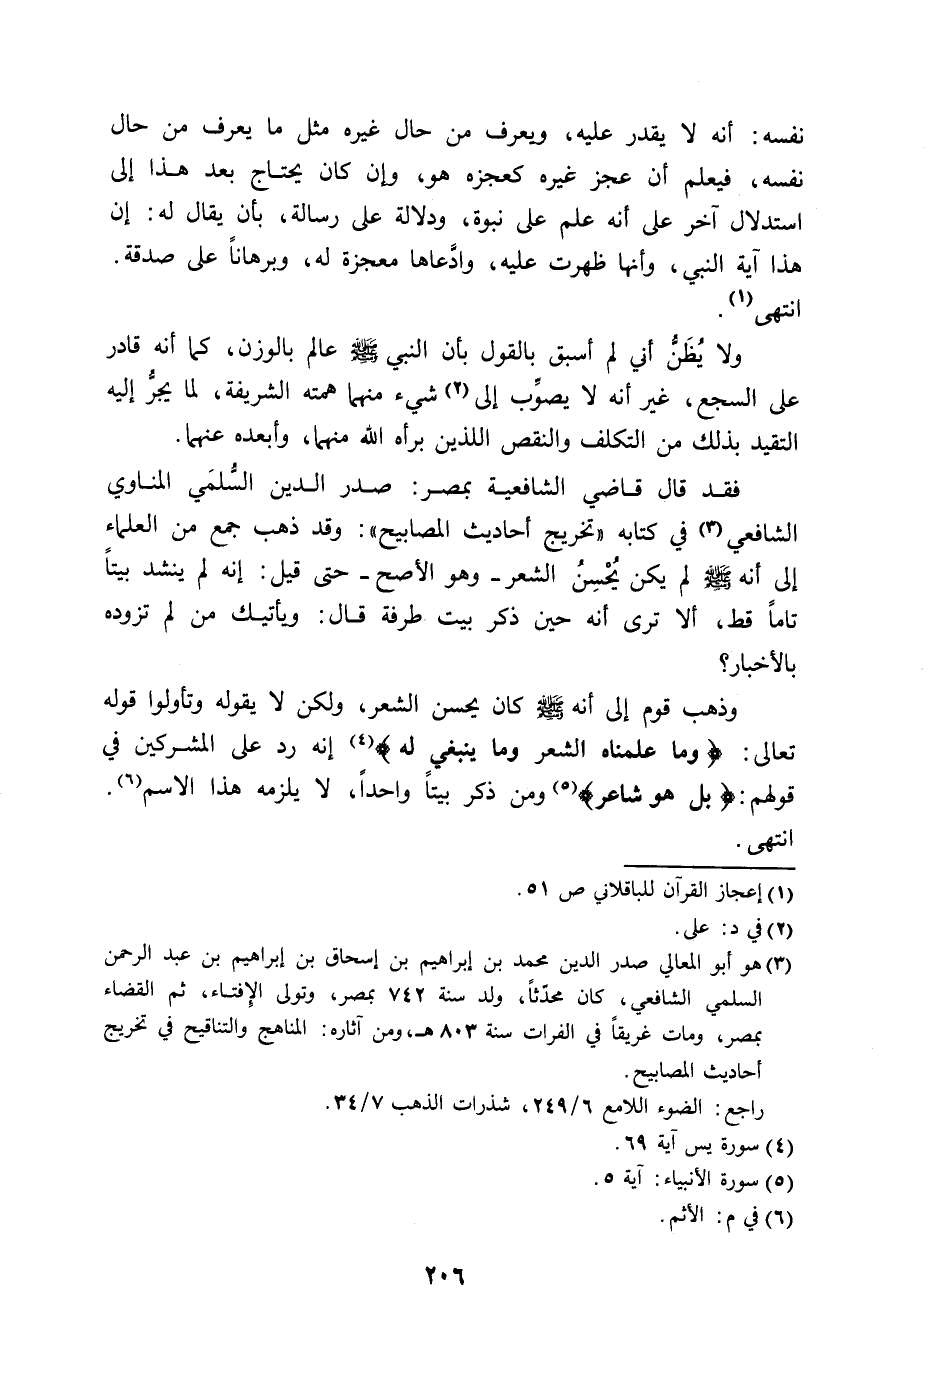 نفسه: أنه لا يقدر عليه، ويعرف من حال غيره مثل ما يعرف من حال
نفسه، فيعلم أن عجز غيره كعجزه هو، وإن كان يحتاج بعد هذا إلى
استدلال آخر على أنه علم على نبوة، ودلالة على رسالة، بأن يقال له: إن
هذا آية النبي، وأنها ظهرت عليه، وادَّعاها معجزة له، وبرهاناً على صدقة.
انتهى(١).
ولا يُظَنُّ أني لم أسبق بالقول بأن النبي ﷺ عالم بالوزن، كما أنه قادر
على السجع، غير أنه لا يصوِّب إلى(٢) شيء منهما همته الشريفة، لما يجرُّ إليه
التقيد بذلك من التكلف والنقص اللذين برأه الله منهما، وأبعده عنهما.
فقد قال قاضي الشافعية بمصر: صدر الدين السُّلمَي المناوي
الشافعي(٣) في كتابه «تخريج أحاديث المصابيح»: وقد ذهب جمع من العلماء
إلى أنه ﷺ لم يكن يُحْسِنُ الشعر - وهو الأصح - حتى قيل: إنه لم ينشد بيتاً
تاماً قط، ألا ترى أنه حين ذكر بيت طرفة قال: ويأتيك من لم تزوده
بالأخبار؟
وذهب قوم إلى أنه ﷺ كان يحسن الشعر، ولكن لا يقوله وتأولوا قوله
تعالى: ﴿وما علمناه الشعر وما ينبغي له﴾(٤) إنه رد على المشركين في
قولهم: ﴿بل هو شاعر﴾(٥) ومن ذكر بيتاً واحداً، لا يلزمه هذا الاسم(٦).
انتهى.
(١) إعجاز القرآن للباقلاني ص ٥١.
(٢) في د: على.
(٣) هو أبو المعالي صدر الدين محمد بن إبراهيم بن إسحاق بن إبراهيم بن عبد الرحمن
السلمي الشافعي، كان محدّثاً، ولد سنة ٧٤٢ بمصر، وتولى الإفتاء، ثم القضاء
بمصر، ومات غريقاً في الفرات سنة ٨٠٣ هـ، ومن آثاره: المناهج والتناقيح في تخريج
أحاديث المصابيح.
راجع: الضوء اللامع ٢٤٩/٦، شذرات الذهب ٣٤/٧.
(٤) سورة يس آية ٦٩.
(٥) سورة الأنبياء: آية ٥.
(٦) في م: الأثم.
٢٠٦